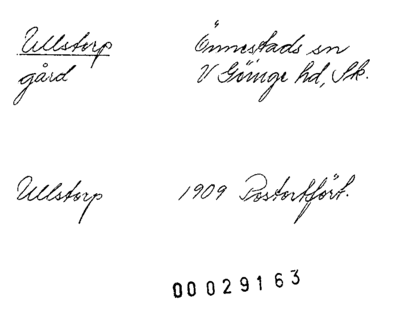 Ullstorp Önnestads sn
gård V Göinge hd, Sk.
Ullstorp 1909 Postortfört.
00029163